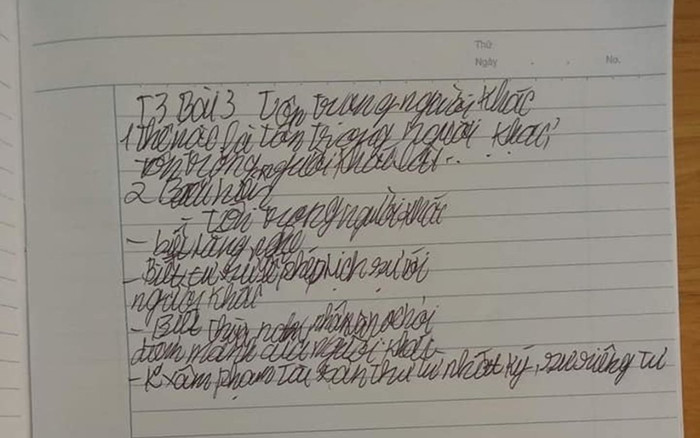 Thứ
Ngày . . No.
T3 Bài 3 Tôn trọng người khác
1 thế nào là tôn trọng người khác
tôn trọng người khác là . . .
2
- Tôn trọng người khác
- biết lắng nghe
- Biết cư xử lễ phép lịch sự với
người khác
- Biết thừa nhận
điểm mạnh của người khác
- K xâm phạm tài sản thư từ nhật ký, sự riêng tư